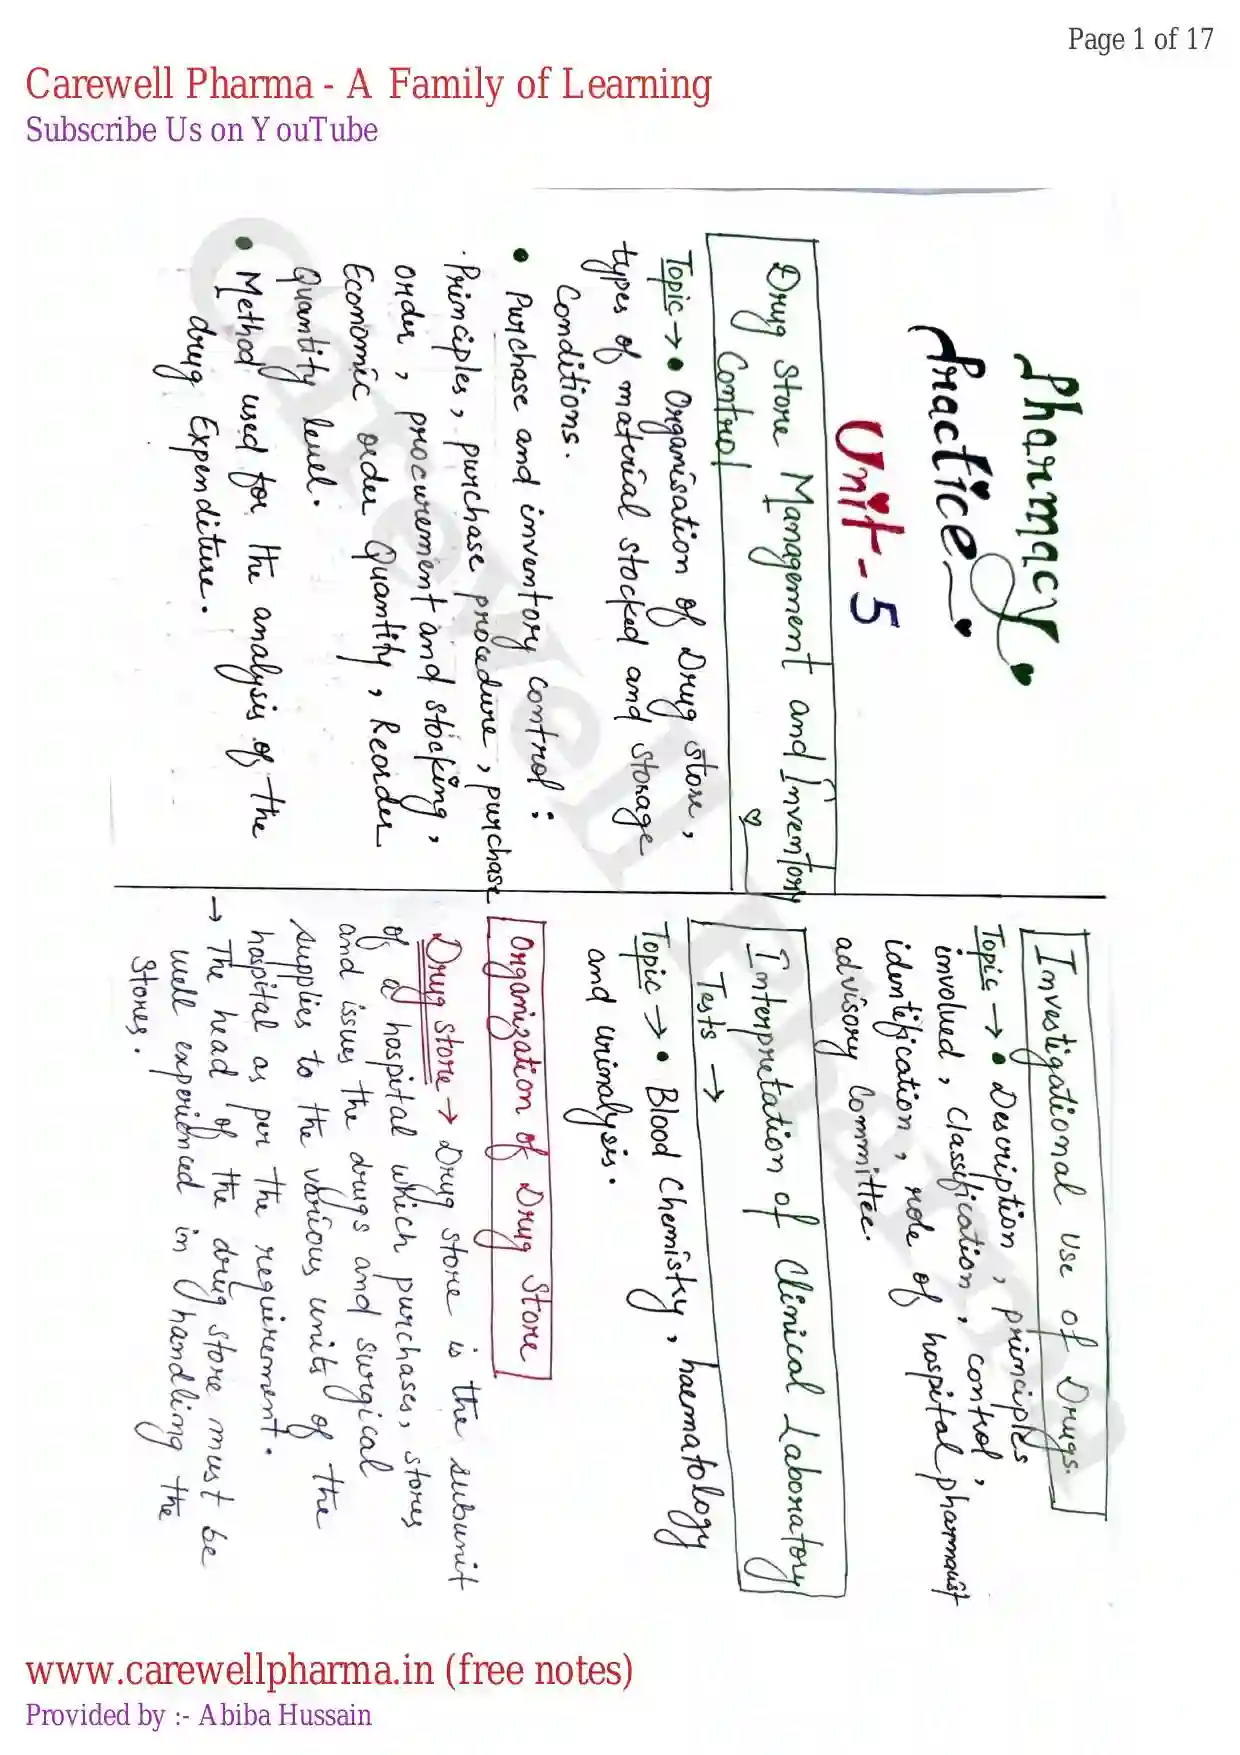 Page 1 of 17
Carewell Pharma - A Family of Learning
Subscribe Us on YouTube
Pharmacy
Practice
Unit - 5
Drug Store Management and Inventory
Control
Topic → • Organisation of Drug store,
types of material stocked and storage
Conditions.
• Purchase and inventory control :
· Principles, purchase procedure, purchase
order, procurement and stocking,
Economic order Quantity, Reorder
Quantity level.
• Method used for the analysis of the
drug Expenditure.
Investigational use of Drugs.
Topic → • Description, principles
involved, classification, control,
identification, role of hospital pharmacist
advisory Committee.
Interpretation of Clinical Laboratory
Tests →
Topic → • Blood Chemistry, haematology
and urinalysis.
Organization of Drug Store
Drug store → Drug store is the subunit
of a hospital which purchases, stores
and issues the drugs and surgical
supplies to the various units of the
hospital as per the requirement.
→ The head of the drug store must be
well experienced in handling the
stores.
Carewell Pharma
www.carewellpharma.in (free notes)
Provided by :- Abiba Hussain